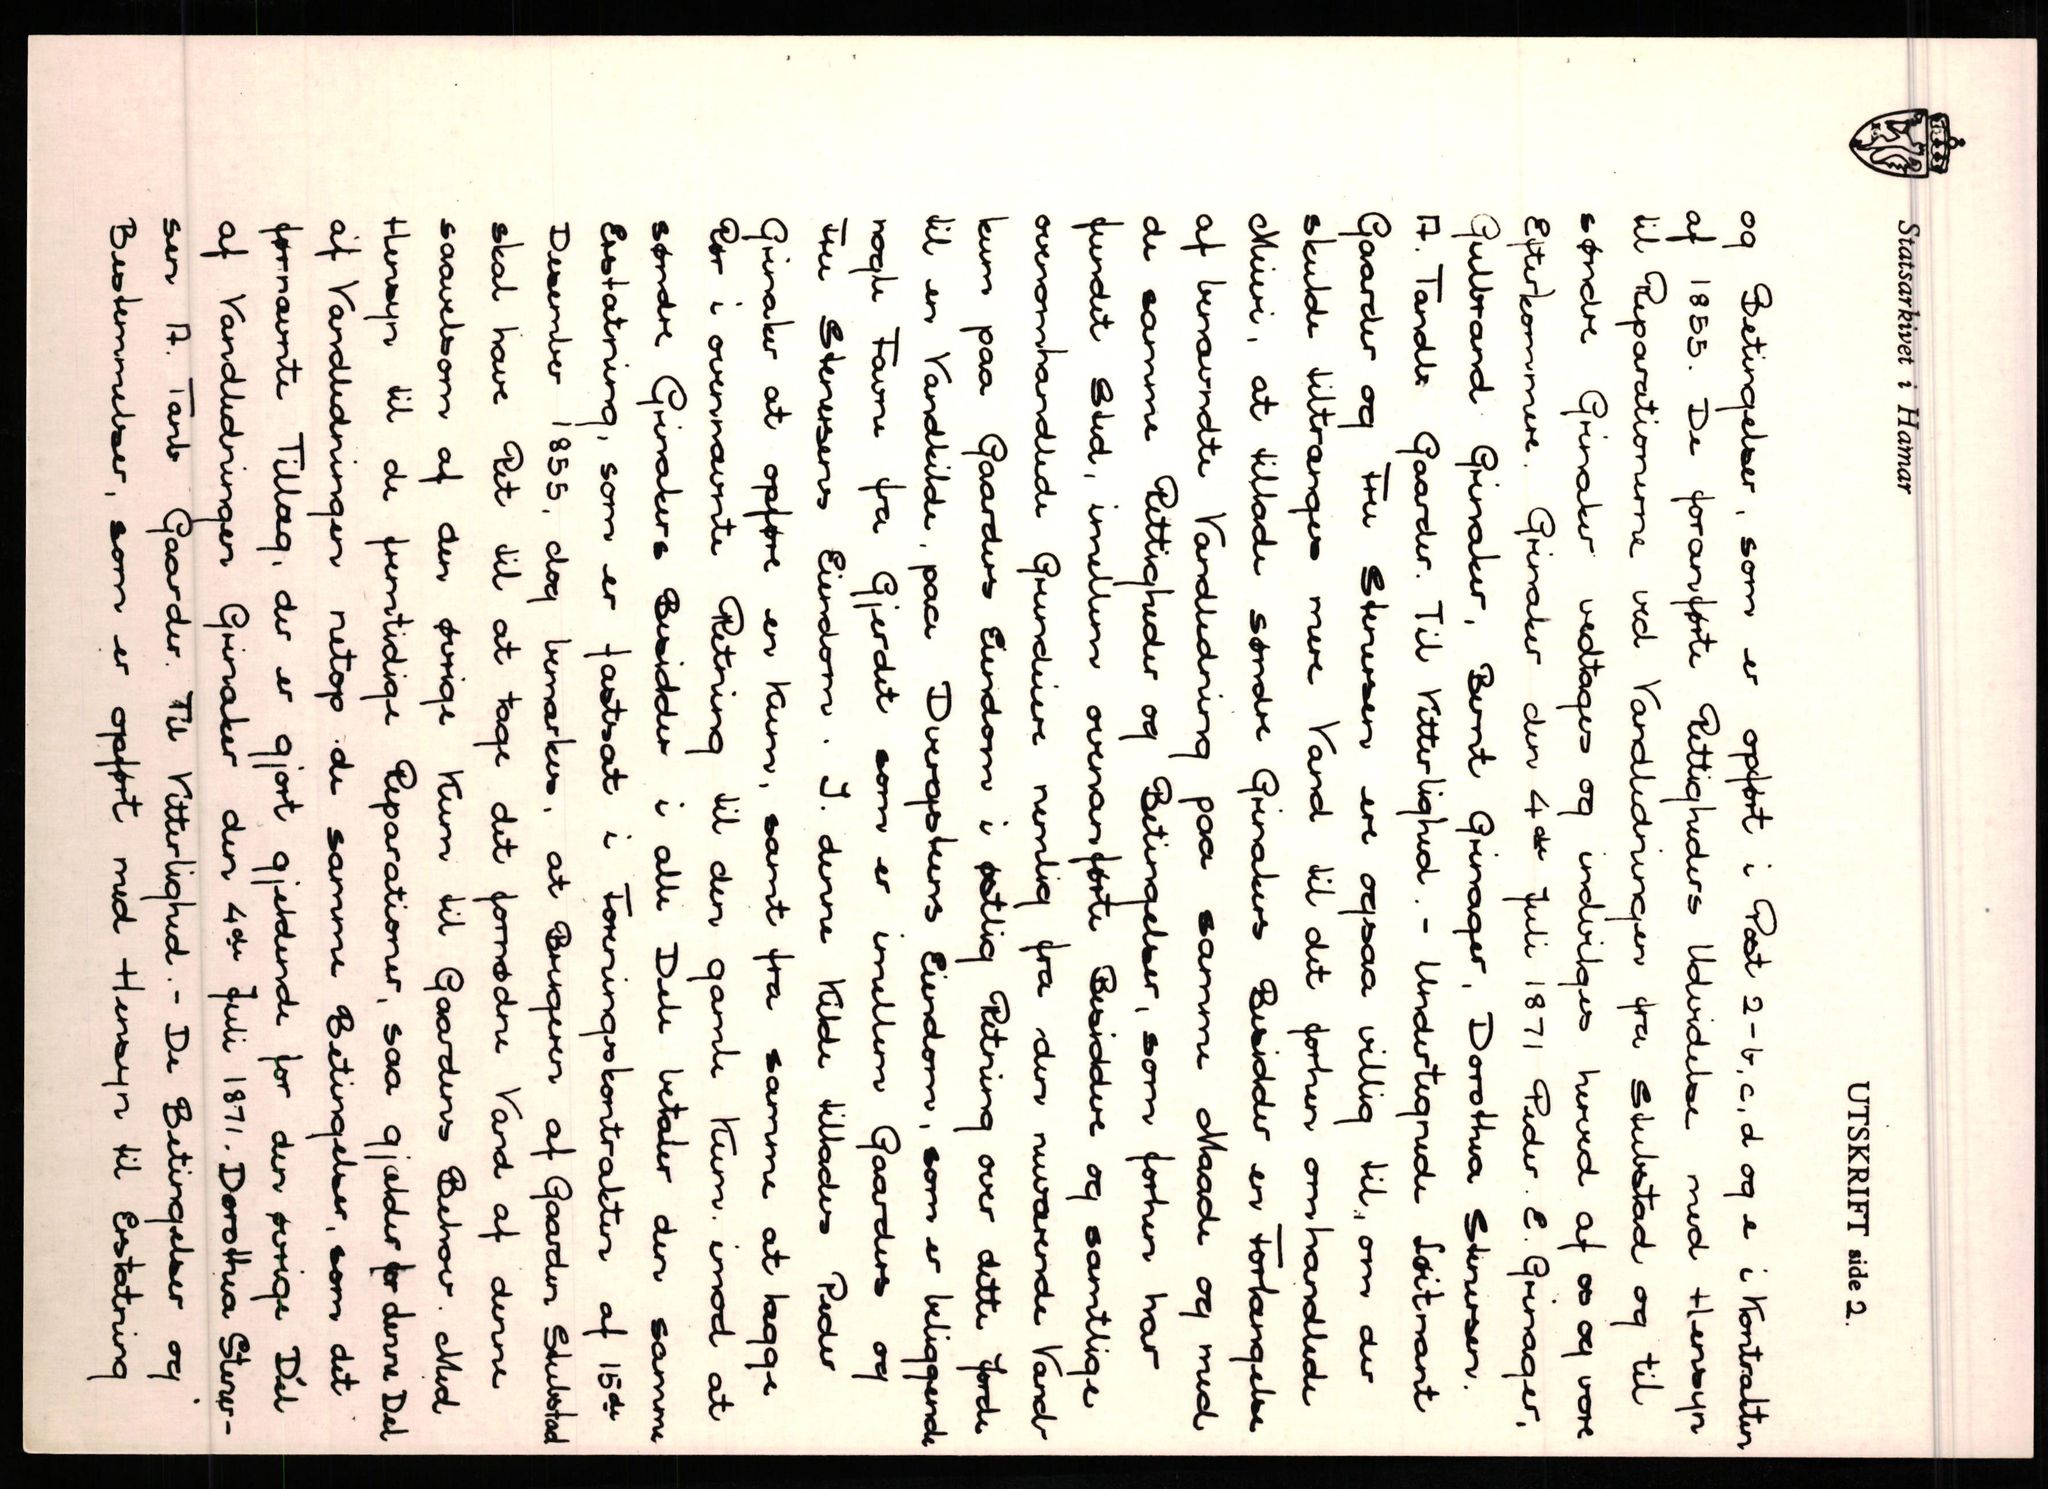 Statsarkivet i Hamar
UTSKRIFT side 2.
og Betingelser, som er opført i Post 2-b, c, d og e i Kontrakten
af 1855. De foranførte Rettigheders Udvidelse med Hensyn
til Reparationerne ved Vandledningen fra Stubstad og til
søndre Grinaker vedtages og indvilges herved af os og vore
Efterkommere. Grinaker den 4de Juli 1871 Peder. E. Grinager,
Gulbrand Grinaker, Bernt Grinager, Dorothea Stenersen.
A. Tandb Gaarder. Til Vitterlighed. - Undertegnede Løitnant
Gaarder og Fru Stenersen ere ogsaa villig til, om der
skulde tiltrænges mere Vand til det forhen omhandlede
Meieri, at tillade søndre Grinakers Besidder en Forlængelse
af benævndte Vandledning paa samme Maade og med
de samme Rettigheder og Betingelser, som forhen har
fundet Sted, imellem ovenanførte Besiddere og samtlige
ovenomhandlede Grundeiere nemlig fra den nuværende Vand-
kum paa Gaarders Eiendom i østlig Retning over dette Jorde
til en Vandkilde, paa Dvergsteens Eiendom, som er beliggende
nogle Favne fra Gjerdet som er imellem Gaarders og
Fru Stenersens Eiendom. I. denne Kilde tillades Peder
Grinaker at opføre en Kum, samt fra samme at lægge
Rør i ovennævnte Retning til den gamle Kum. imod at
søndre Grinakers Besidder i alle Dele betaler den samme
Erstatning, som er fastsat i Foreningskontrakten af 15de
Desember 1855, dog bemærkes, at Brugeren af Gaarden Stubstad
skal have Ret til at tage det fornødne Vand af denne
saavelsom af den øvrige Kum til Gaardens Behov. Med
Hensyn til de fremtidige Reparationer, saa gjælder for denne Del
af Vandledningen netop de samme Betingelser, som det
førnævnte Tillæg, der er gjort gjeldende for den øvrige Del
af Vandledningen Grinaker den 4de Juli 1871. Dorothea Stener-
sen A. Tanb Gaarder. Til Vitterlighed. - De Betingelser og
Bestemmelser, som er opført med Hensyn til Erstatning